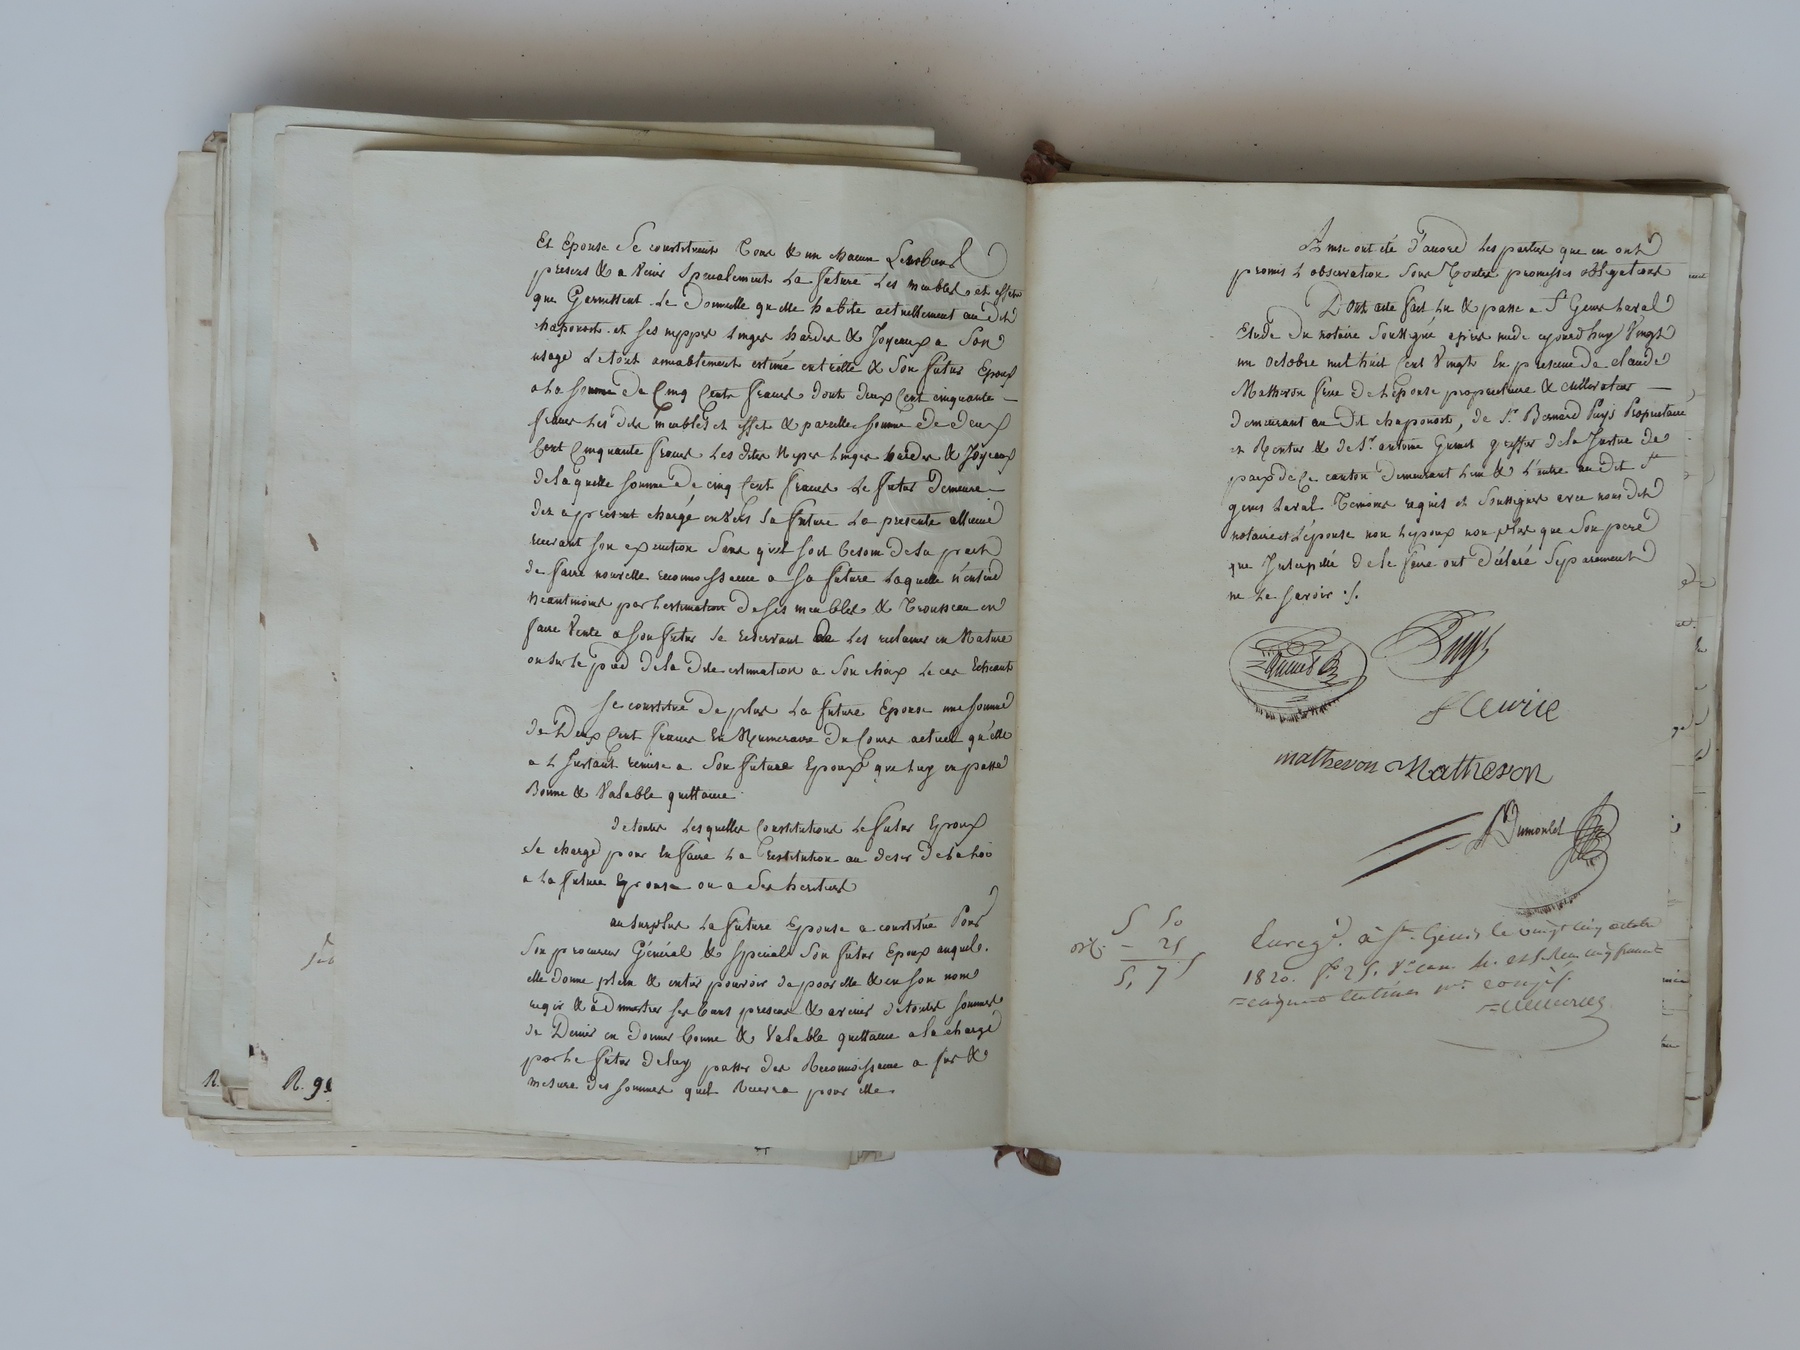 Et Epouse Se constituent Tous & un chacun Leurs biens
presens & a Venir Specialement La future Les meubles et effets
que Garnissent Le Domicille qu'elle habite actuellement au dit
chaponost et Ses nippes Linges hardes & Joyeaux a Son
usage Le tout amiablement estimé entr'elle & Son futur Epoux
a La Somme De Cinq Cents francs Dont deux Cent cinquante
francs Les dits meubles et effet & pareille Somme De deux
Cent Cinquante francs Les dites Nipes Linges hardes & Joyeaux
de laquelle Somme De cinq Cent francs Le futur Demeure
dez a present chargé envers Sa future La presente
Sans qu'il Soit besoin de Sa part
de faire nouvelle reconnoissance a Sa future Laquelle n'entend
Neantmoins par L'estimation De Ses meubles & Trousseau en
faire Vente a Son futur Se reservant de Les reclamer en Nature
ou Sur Le pied de La dite estimation a Son choix Le cas Echeant
Se constitue De plus La future Epouse une Somme
de Deux Cent francs En Numeraire Du Cours actuel qu'elle
a L'Instant remise a Son future Epoux que Luy en passe
Bonne & Valable quittance
de toutes Lesquelles Constitutions Le futur Epoux
Se charge pour En faire La restitution au desir De La Loi
a La future Epouse ou a Ses heritiers
au Surplus La future Epouse a constitué Pour
Son procureur Général & Special Son futur Epoux auquel
elle donne plein & entier pouvoir de pour elle & en Son nom
regir & administrer Ses biens presens & avenir de toutes Sommes
de Deniers en donner bonne & Valable quittance a la charge
par Le futur de Luy passer des Reconnoissance a fur &
mesure des Sommes quil Recevra pour elle
R. 
R. 9
Ainsi ont été D'accord Les parties que en ont
promis L'observation Sous Toutes promesses obligations
Dont acte fait Lu & passé a St Genis Laval
Etude Du notaire Soussigné après midi cejourd'huy Vingt
un octobre mil huit Cent Vingt En presence De claude
Matheron frere De L'épouse proprietaire & cultivateur
demeurant au Dit chaponost, de Sr Bernard Puys Proprietaire
et Rentier & de Sr antoine greffier de la Justice de
paix de Ce canton Demeurant L'un & L'autre au dit St
genis Laval Temoins requis et Soussignés avec nous dit
notaire et L'épouse non L'epoux non plus que Son pere
que Interpellé De le faire ont Déclaré Separement
ne Le Savoir ./.
Puys
fleurie
matheron Matheron
Dumoulet
5 50
- 25
5, 75
Enregé. à St. Genis le vingt cinq octobre
1820. fo. 25.